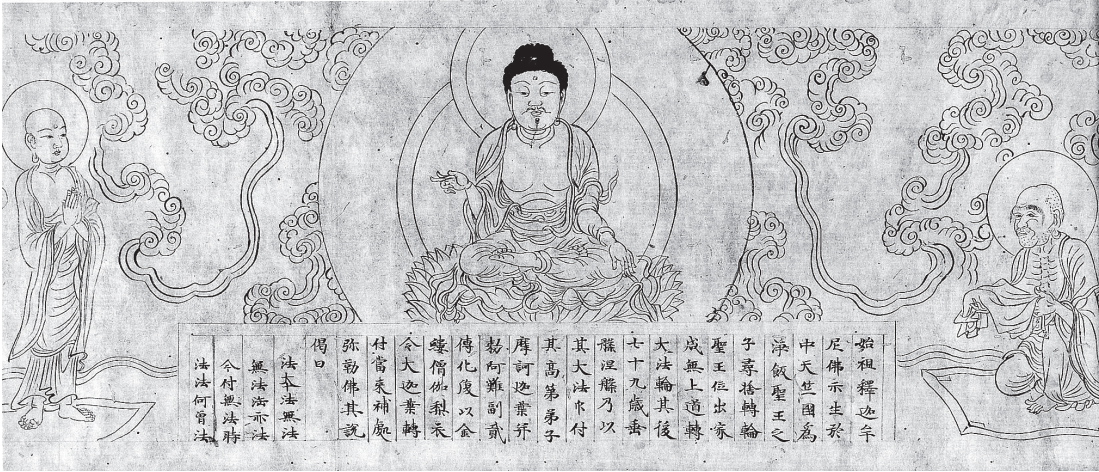 始祖釋迦牟
尼佛示生於
中天竺國爲
淨飯聖王之
子尋捨轉輪
聖王位出家
成無上道轉
大法輪其後
七十九歲垂
般涅槃乃以
其大法印付
其高第弟子
摩訶迦葉并
勑阿難副貳
傳化復以金
縷僧伽梨衣
令大迦葉轉
付當來補處
弥勒佛其說
偈曰
法夲法無法
無法法亦法
今付無法時
法法何曾法